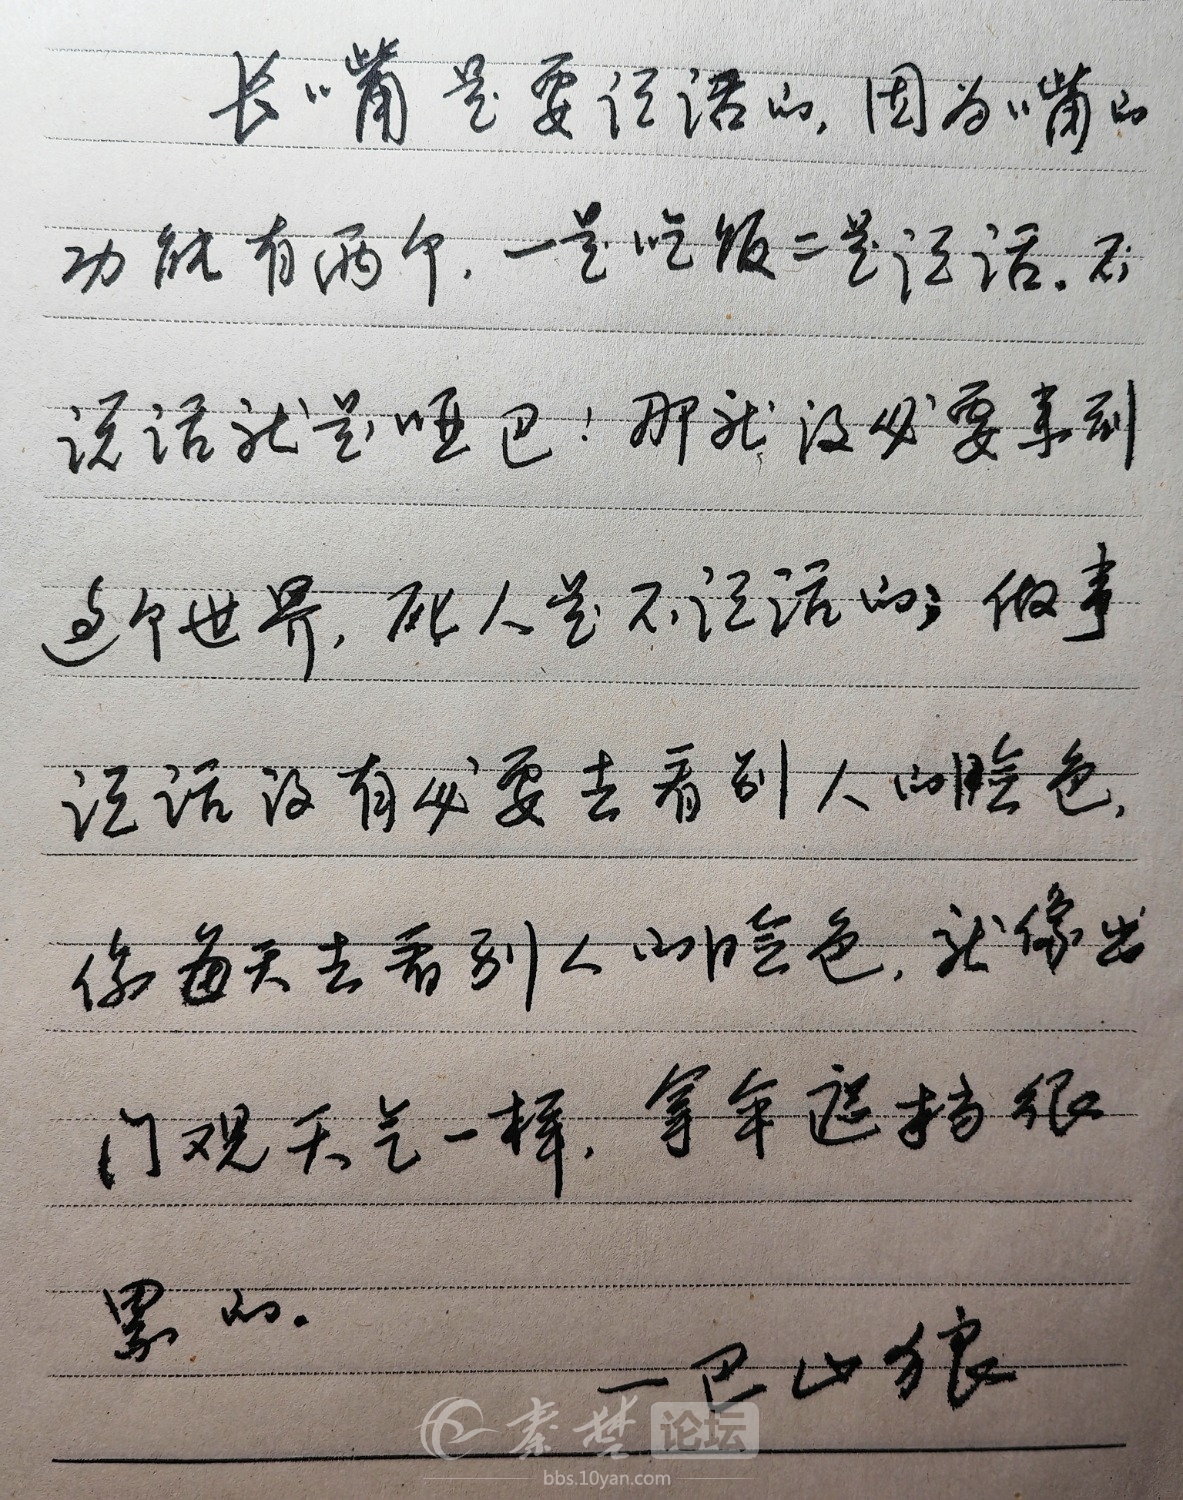 长嘴是要说话的,因为嘴的
功能有两个,一是吃饭二是说话。不
说话就是哑巴!那就没必要来到
这个世界,死人是不说话的;做事
说话没有必要去看别人的脸色,
你每天去看别人的脸色,就像出
门观天气一样,拿伞遮挡很
累的.
一巴山狼
秦楚论坛
bbs.10yan.com